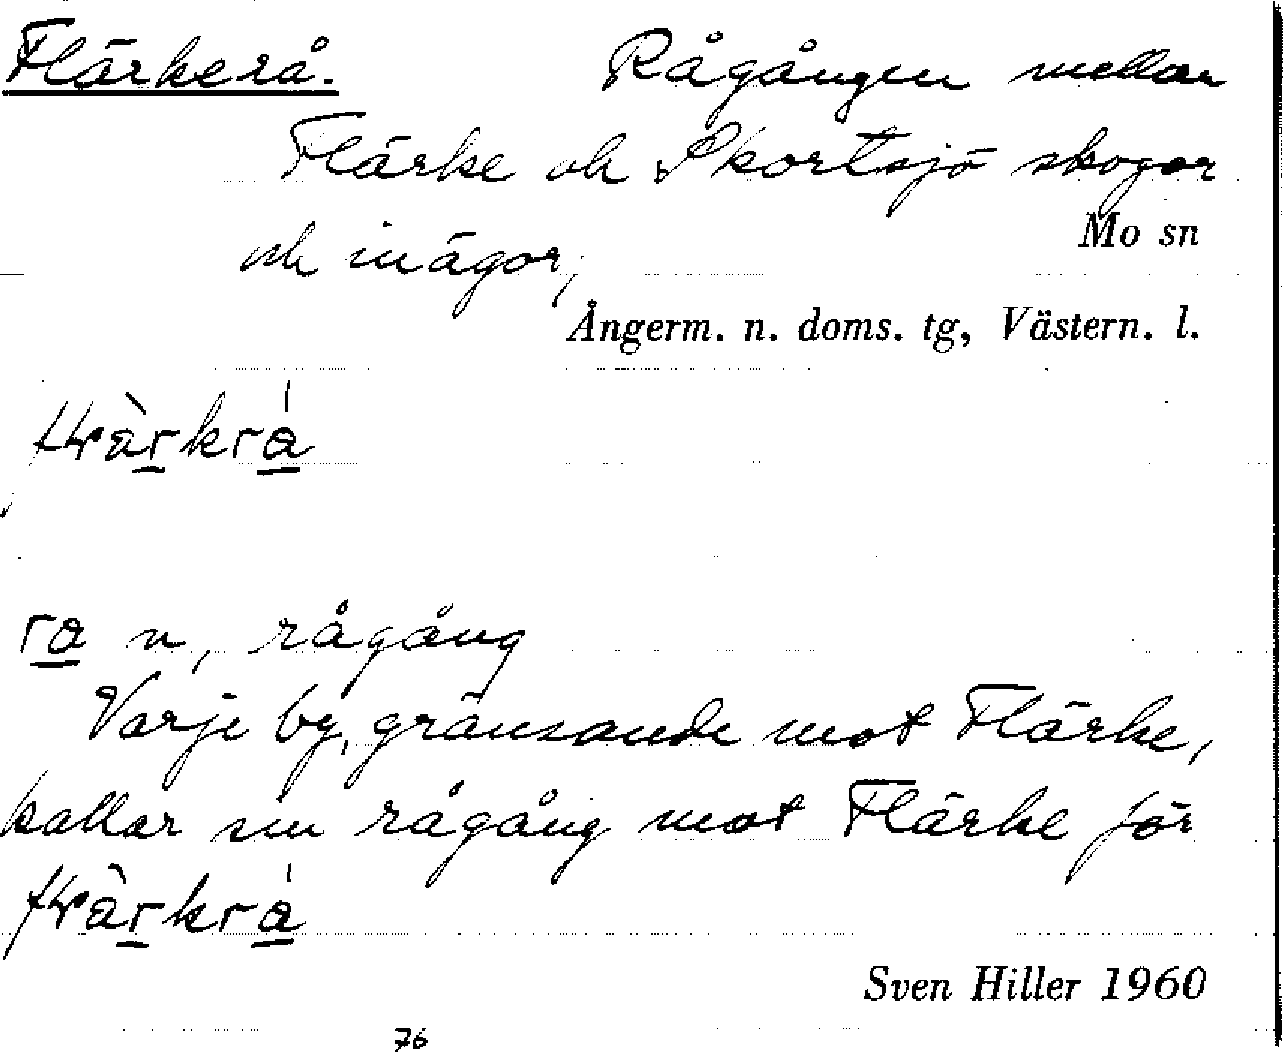 Flärkerå. Rågången mellan
Flärke och Skortsjö skogar
och inägor,
Mo sn
Ångerm. n. doms. tg, Västern. l.
ra n, rågång
Varje by, gränsande mot Flärke,
kallar sin rågång mot Flärke för
Sven Hiller 1960
76